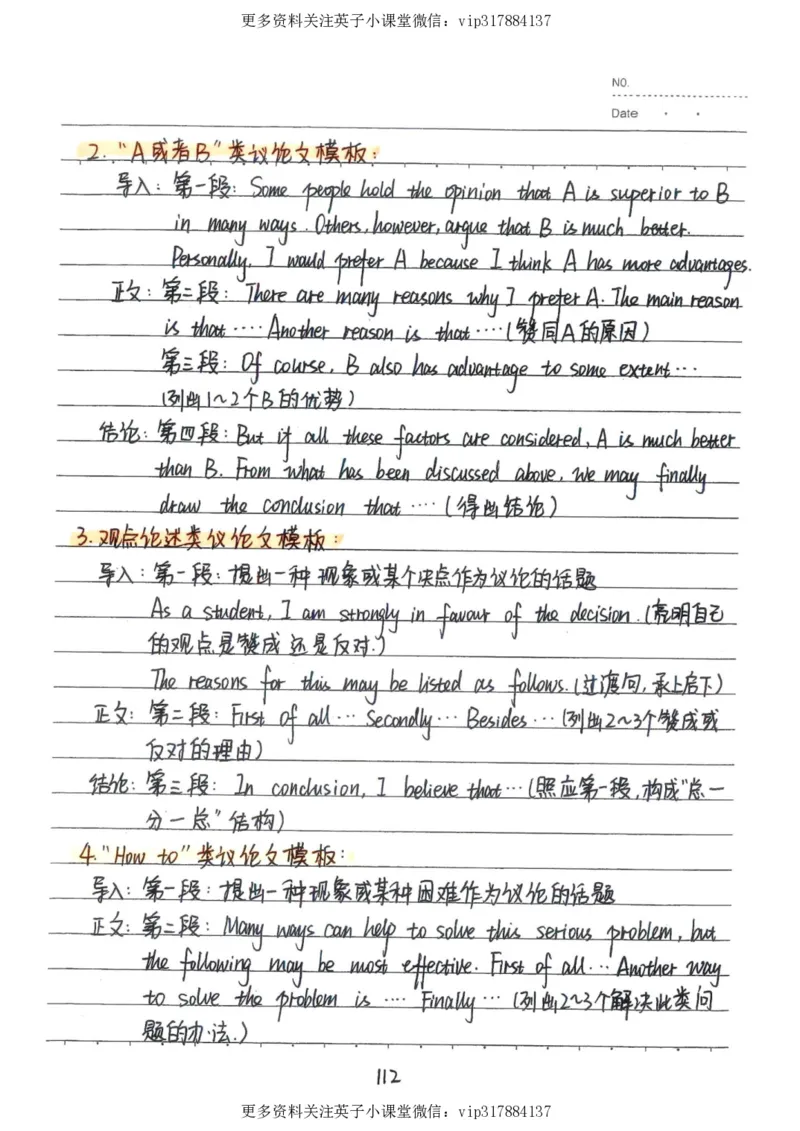 更多资料关注英子小课堂微信：vip317884137
NO.
Date
2. “A或者B”类议论文模板：
导入：第一段：Some people hold the opinion that A is superior to B
in many ways. Others, however, argue that B is much better.
Personally, I would prefer A because I think A has more advantages.
正文：第二段：There are many reasons why I prefer A. The main reason
is that …… Another reason is that ……(赞同A的原因)
第三段：Of course, B also has advantage to some extent …
(列出1~2个B的优势)
结论：第四段：But if all these factors are considered, A is much better
than B. From what has been discussed above, we may finally
draw the conclusion that …… (得出结论)
3. 观点论述类议论文模板：
导入：第一段：提出一种现象或某个决点作为议论的话题
As a student, I am strongly in favour of the decision. (亮明自己
的观点是赞成还是反对.)
The reasons for this may be listed as follows. (过渡句, 承上启下)
正文：第二段：First of all … Secondly … Besides … (列出2~3个赞成或
反对的理由)
结论：第三段：In conclusion, I believe that … (照应第一段, 构成“总一
分一总”结构)
4. “How to”类议论文模板：
导入：第一段：提出一种现象或某种困难作为议论的话题
正文：第二段：Many ways can help to solve this serious problem, but
the following may be most effective. First of all … Another way
to solve the problem is …… Finally … (列出2~3个解决此类问
题的办法.)
112
更多资料关注英子小课堂微信：vip317884137